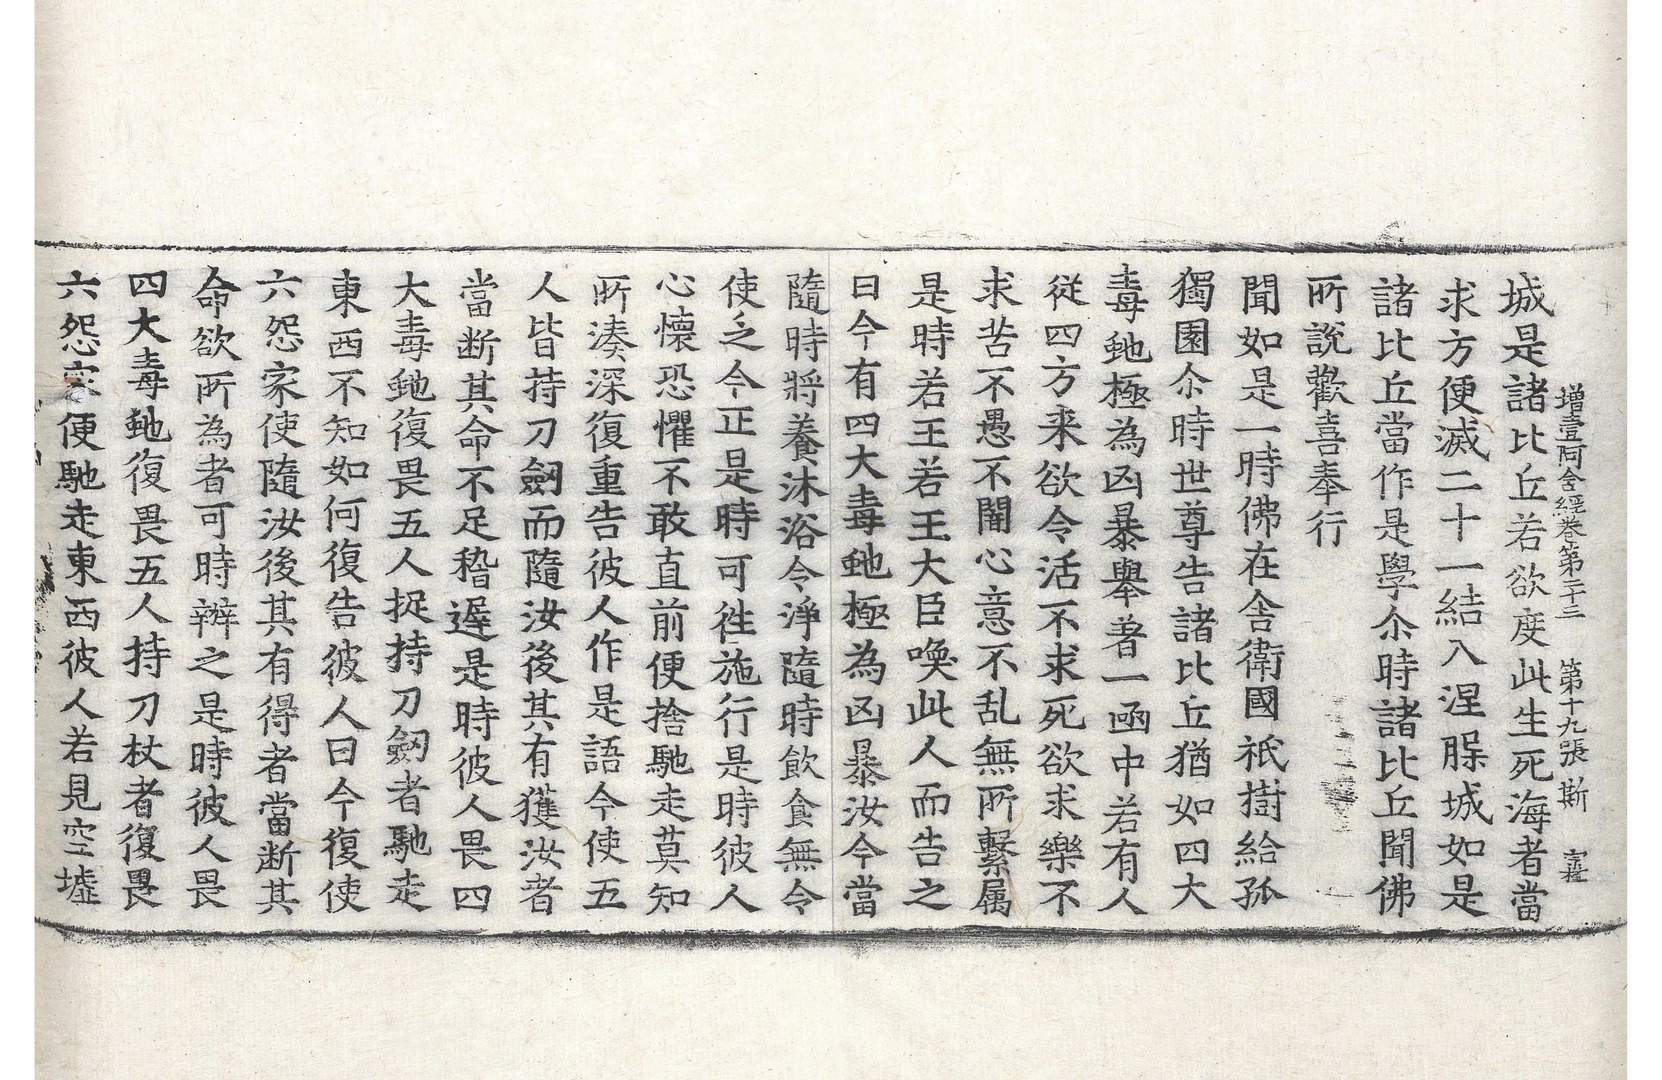 增壹阿含經卷第二十三　第十九張　斯
城是諸比丘若欲度此生死海者當
求方便滅二十一結入涅槃城如是
諸比丘當作是學尒時諸比丘聞佛
所說歡喜奉行
聞如是一時佛在舎衛國祇樹給孤
獨園尒時世尊告諸比丘猶如四大
毒虵極為凶暴舉著一函中若有人
從四方来欲令活不求死欲求樂不
求苦不愚不闇心意不乱無所繫属
是時若王若王大臣喚此人而告之
曰今有四大毒虵極為凶暴汝今當
隨時將養沐浴令淨隨時飲食無令
使乏今正是時可徃施行是時彼人
心懷恐懼不敢直前便捨馳走莫知
所湊深復重告彼人作是語今使五
人皆持刀劒而隨汝後其有獲汝者
當断其命不足稽遲是時彼人畏四
大毒虵復畏五人捉持刀劒者馳走
東西不知如何復告彼人曰今復使
六怨家使隨汝後其有得者當断其
命欲所為者可時辦之是時彼人畏
四大毒虵復畏五人持刀杖者復畏
六怨家便馳走東西彼人若見空墟